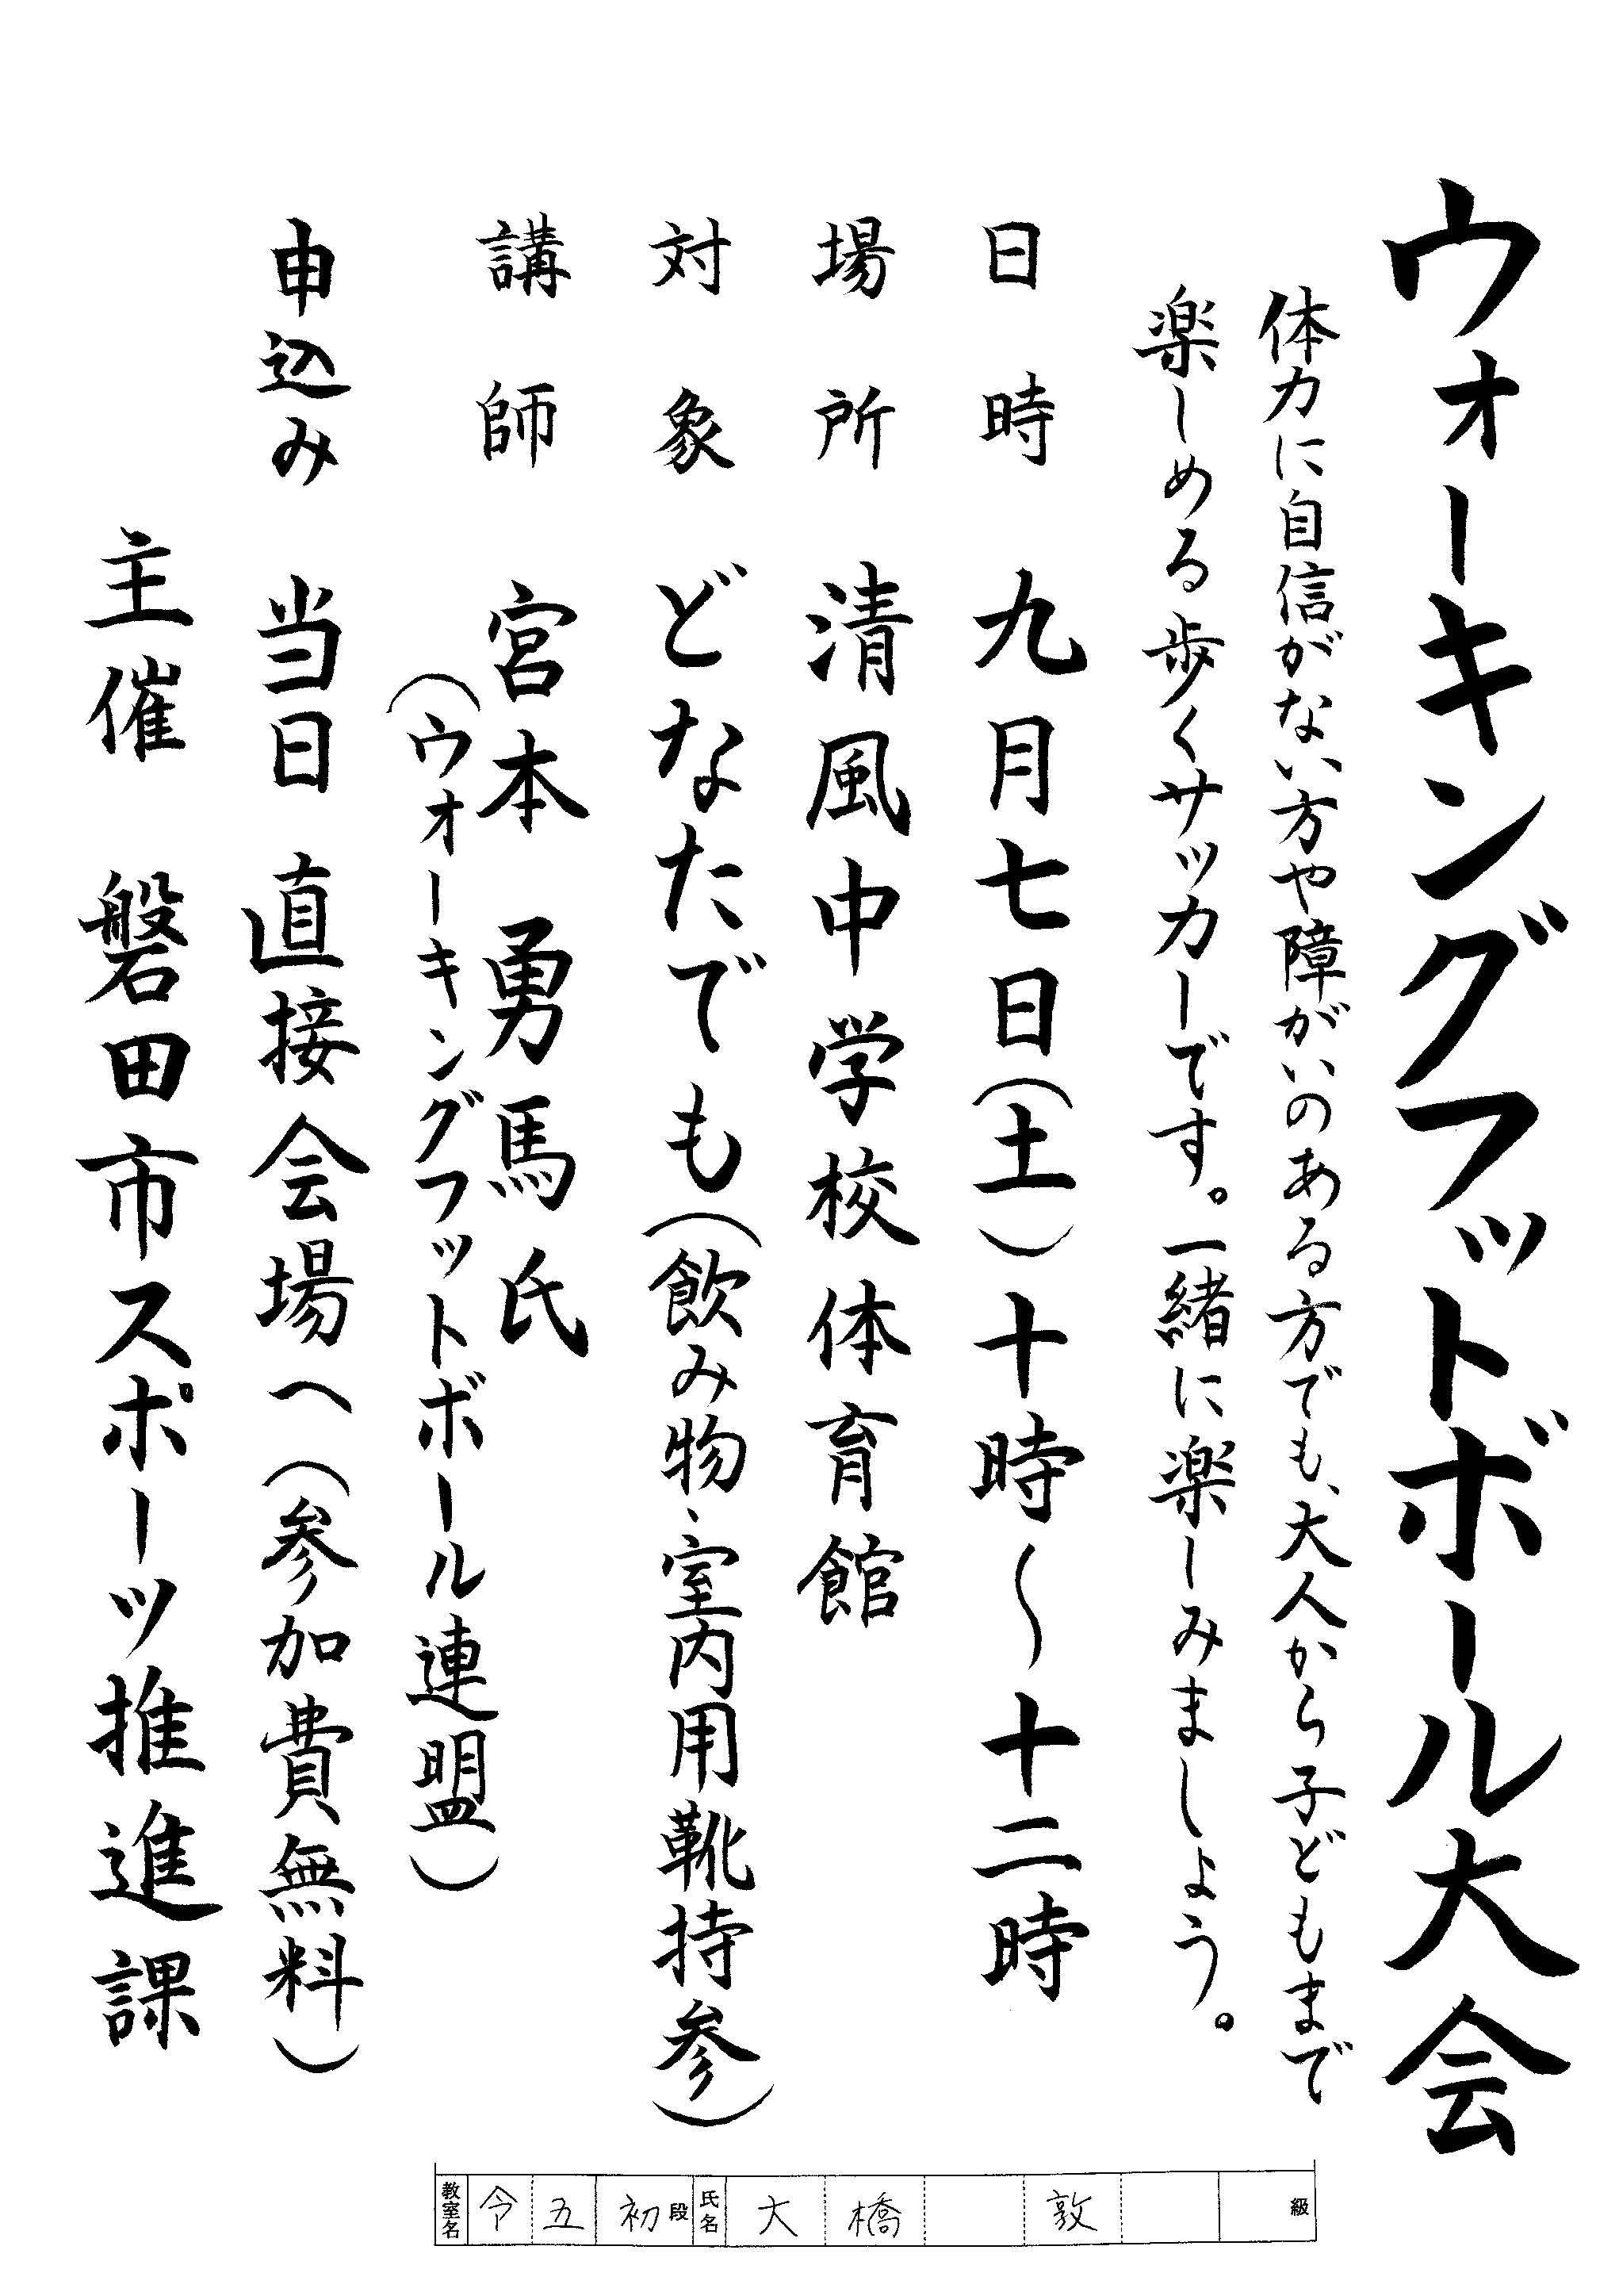 ウォーキングフットボール大会
体力に自信がない方や障がいのある方でも、大人から子どもまで
楽しめる歩くサッカーです。一緒に楽しみましょう。
日時 九月七日(土)十時〜十二時
場所 清風中学校体育館
対象 どなたでも(飲み物、室内用靴持参)
講師 宮本 勇馬氏
(ウォーキングフットボール連盟)
申込み 当日直接会場へ(参加費無料)
主催 磐田市スポーツ推進課
教室名 令五 初段 氏名 大橋 敦 級